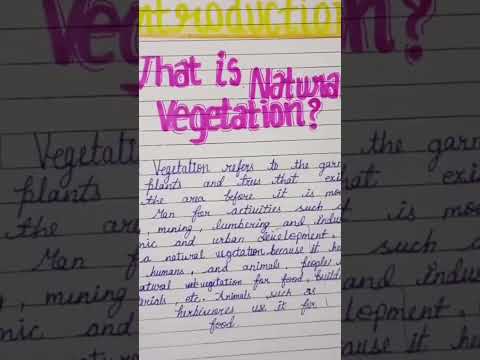 ntroduction
What is Natura
Vegetation?
Vegetation refers to the
plants and tres that exi
the area before it is mo
Man for activities such
, mining, lumbering and Indus
mic and urban development.
a natural vegetation because it he
humans, and animals, people
atural vegetation for food, build
erials, etc. Animals such as
herbivores use it for
food.